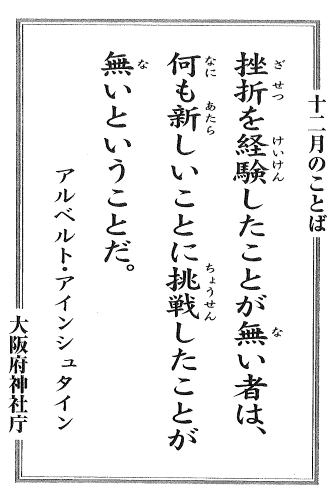 十二月のことば
挫折を経験したことが無い者は、
何も新しいことに挑戦したことが
無いということだ。
アルベルト・アインシュタイン
大阪府神社庁
ざせつ
けいけん
な
なに
あたら
ちょうせん
な